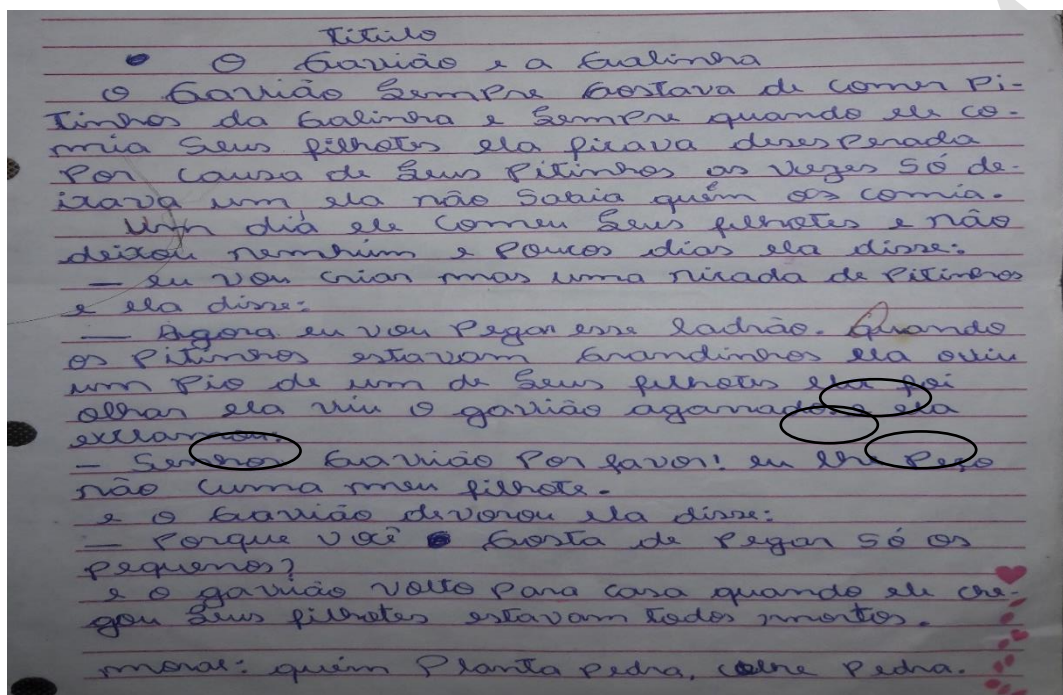 Titulo
O Gavião e a Galinha
O Gavião Sempre Gostava de comer Pi-
Tinhos da Galinha e Sempre quando ele co-
mia Seus filhotes ela ficava desesperada
Por causa de Seus Pitinhos as vezes Só de-
ixava um ela não Sabia quém os comia.
Um dia ele Comeu Seus filhotes e não
deixou nenhum e Poucos dias ela disse:
— eu vou criar mas uma nicada de Pitinhos
e ela disse:
— Agora eu vou Pegar esse ladrão. Quando
os Pitinhos estavam Grandinhos ela ouviu
um Pio de um de Seus filhotes ela foi
olhar ela viu o gavião agarrado e ela
exclamou:
— Senhor Gavião Por favor! eu lhe Peço
não cuma meu filhote.
e o Gavião devorou ela disse:
— Porque você Gosta de Pegar Só os
Pequenos?
e o gavião volto Para casa quando ele che-
gou Seus filhotes estavam todos mortos.
moral: quém Planta Pedra, colhe Pedra.